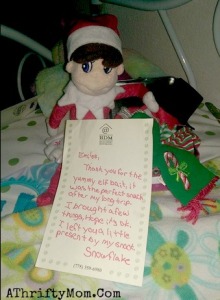 HDM
Emilee,
Thank you for the
yummy elf bait, it
was the perfect snack
after my big trip.
I brought a few
things. Hope it's ok.
I left you a little
present by my snack
Snowflake
AThriftyMom.Com